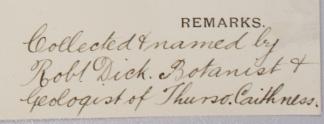 REMARKS.
Collected & named by
Robt Dick. Botanist &
Geologist of Thurso. Caithness.